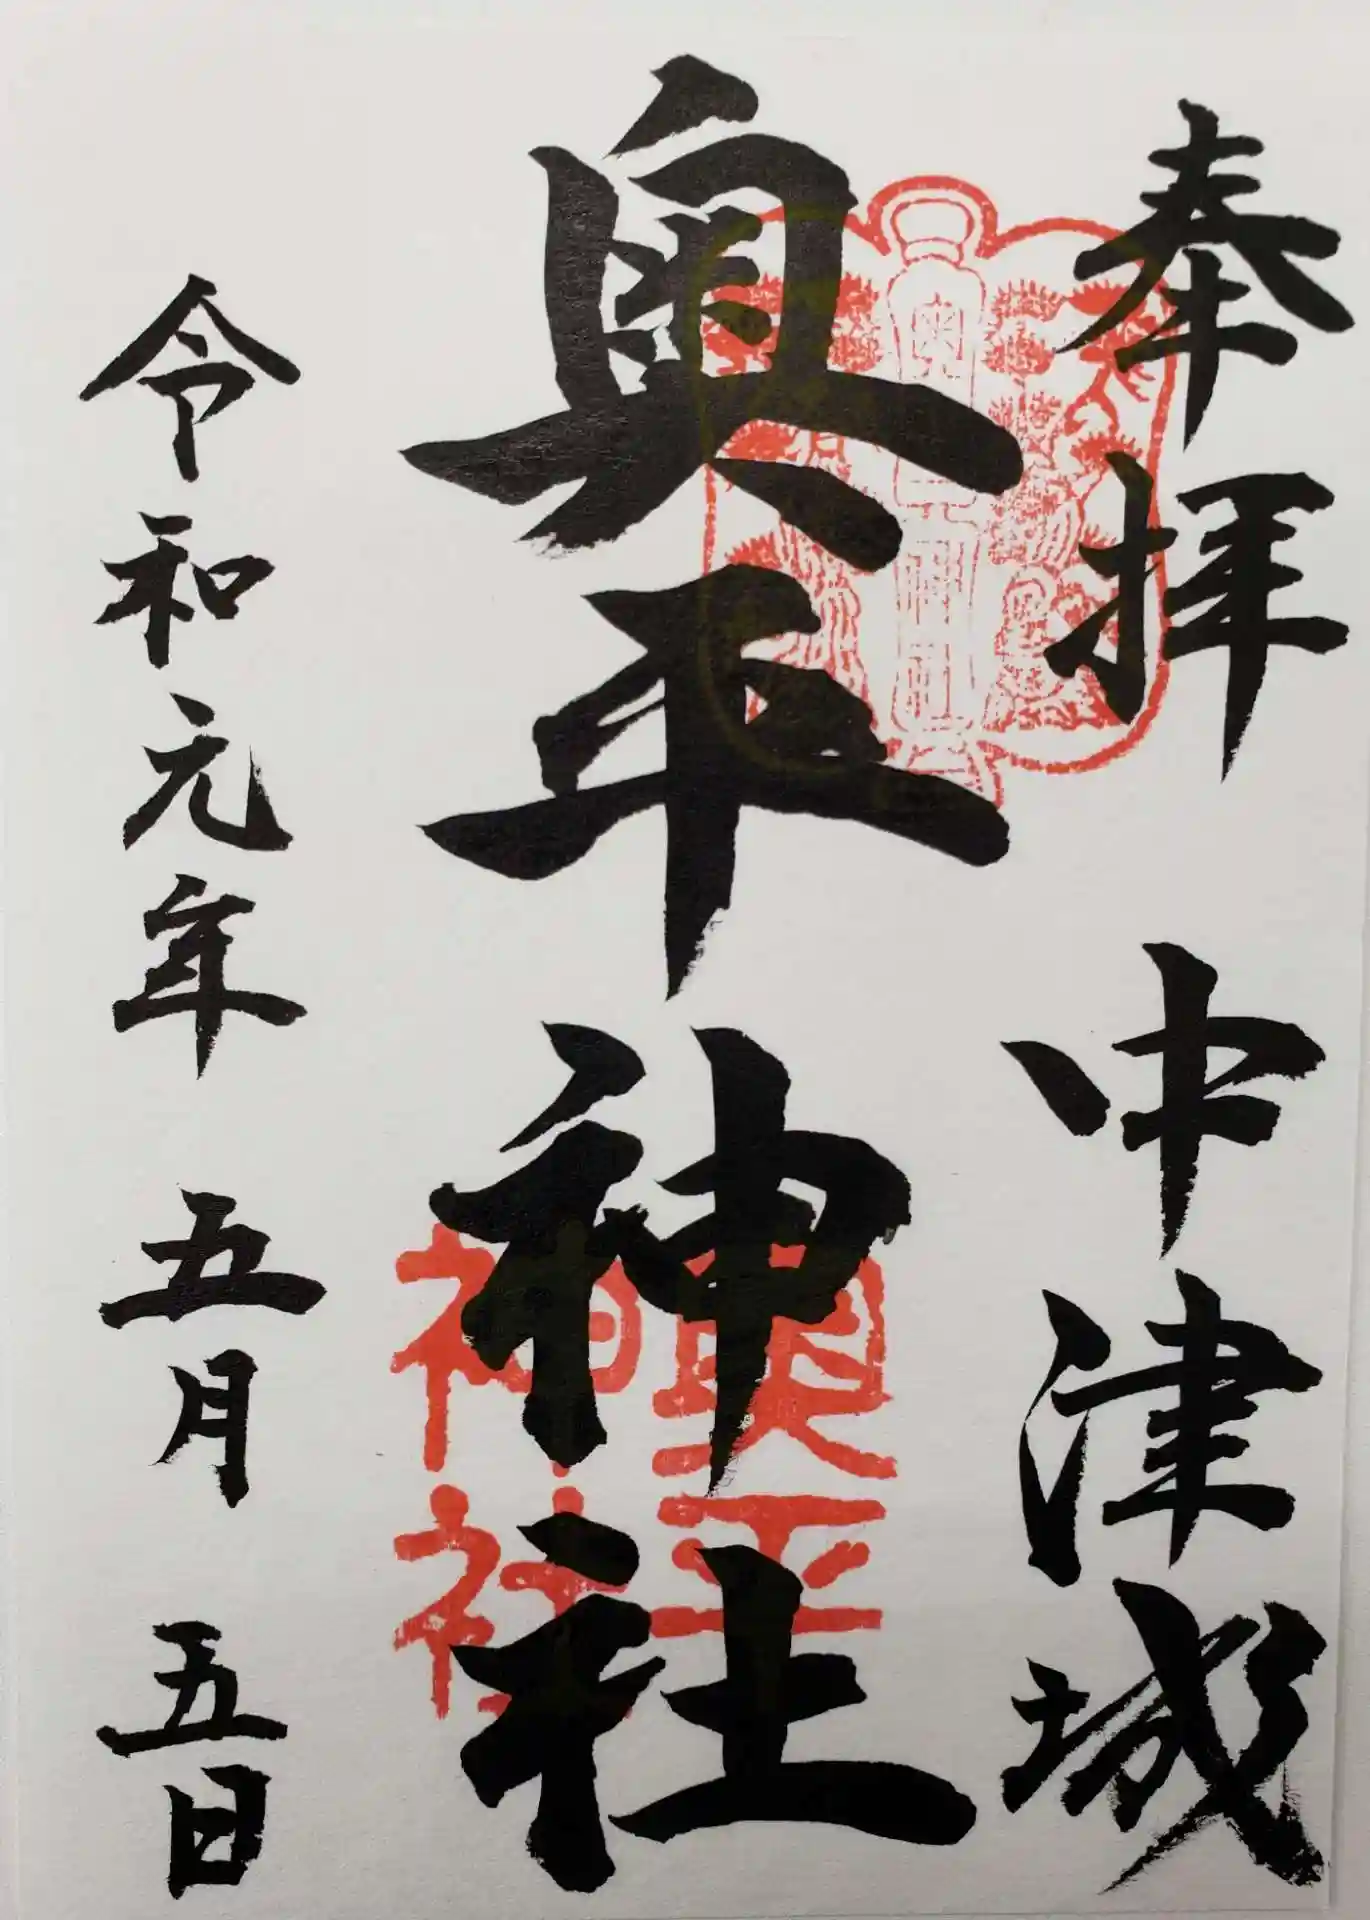 奉拝 中津城
奥平神社
令和元年 五月 五日
奥平
神社